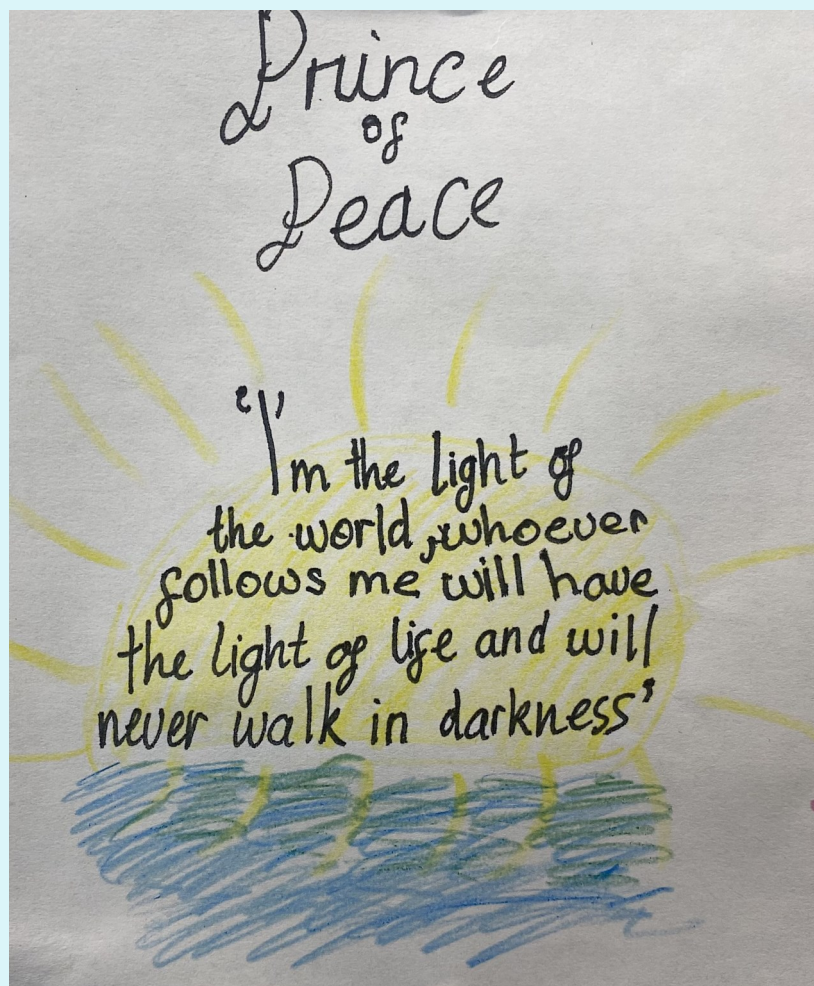 Prince
of
Peace
'I'm the light of
the world, whoever
follows me will have
the light of life and will
never walk in darkness'